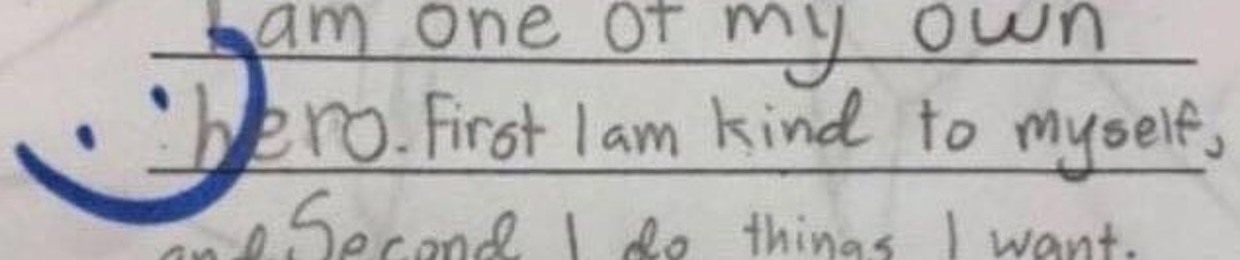 I am one of my own
hero. First I am kind to myself,
and Second I do things I want.